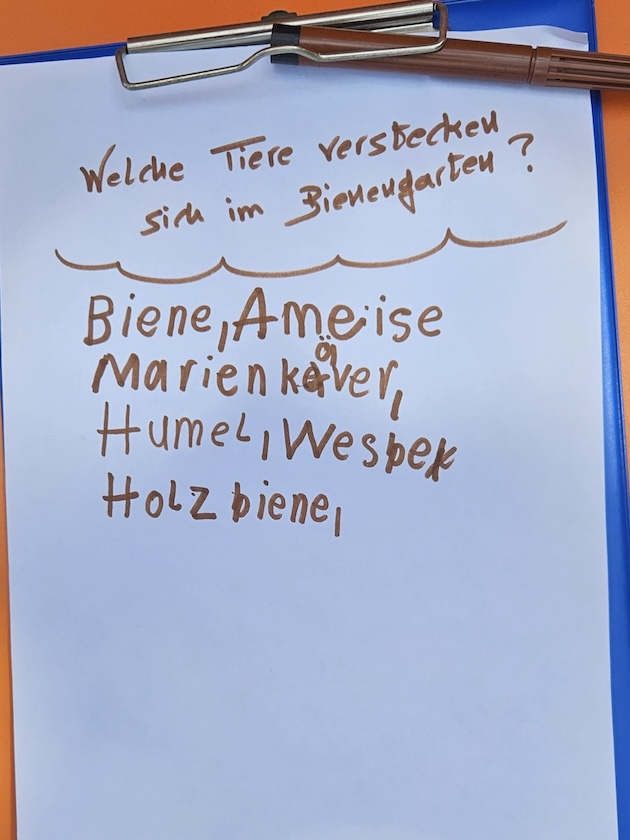 Welche Tiere verstecken
sich im Bienengarten?
Biene, Ameise
Marienkäver,
Humel, Wesbe
Holzbiene,